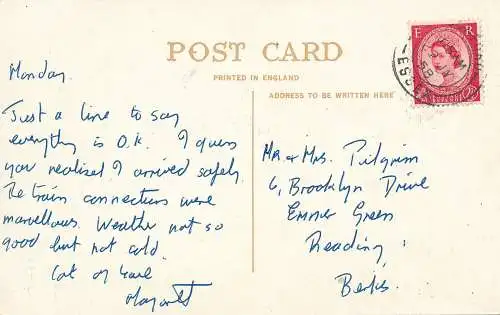 POST CARD
PRINTED IN ENGLAND
ADDRESS TO BE WRITTEN HERE
E R
ESSEX
Monday.
Just a line to say
everything is O.K. I guess
you realised I arrived safely.
Te train connections were
marvellous. Weather not so
good but not cold.
Lots of love
Margaret
Mr & Mrs. Pilgrim
6, Brooklyn Drive
Emmer Green
Reading,
Berks.